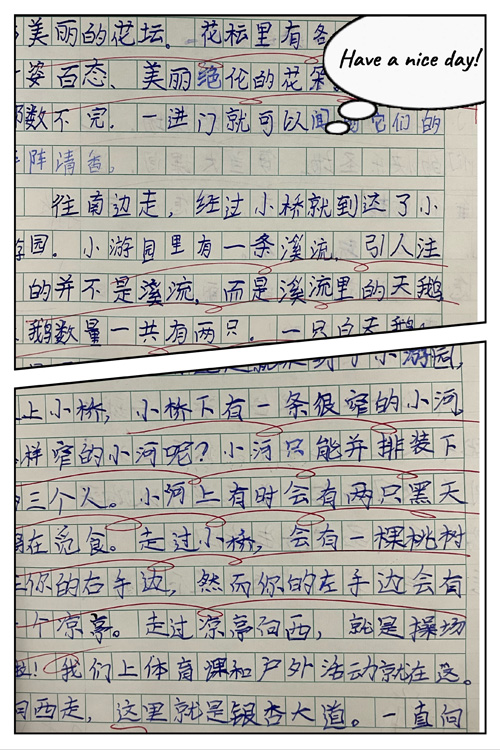 美丽的花坛。花坛里有各
姿百态、美丽绝伦的花
数不完。一进门就可以闻 它们的
阵清香。
Have a nice day!
往南边走，经过小桥就到达了小
游园。小游园里有一条溪流，引人注
的并不是溪流，而是溪流里的天鹅
鹅数量一共有两只。一只白天鹅
了小游园，
上小桥，小桥下有一条很窄的小河
样窄的小河呢？小河只能并排装下
三个人。小河上有时会有两只黑天
在觅食。走过小桥，会有一棵桃树
你的右手边，然而你的左手边会有
个凉亭。走过凉亭向西，就是操场
啦！我们上体育课和户外活动就在这。
向西走，这里就是银杏大道。一直向